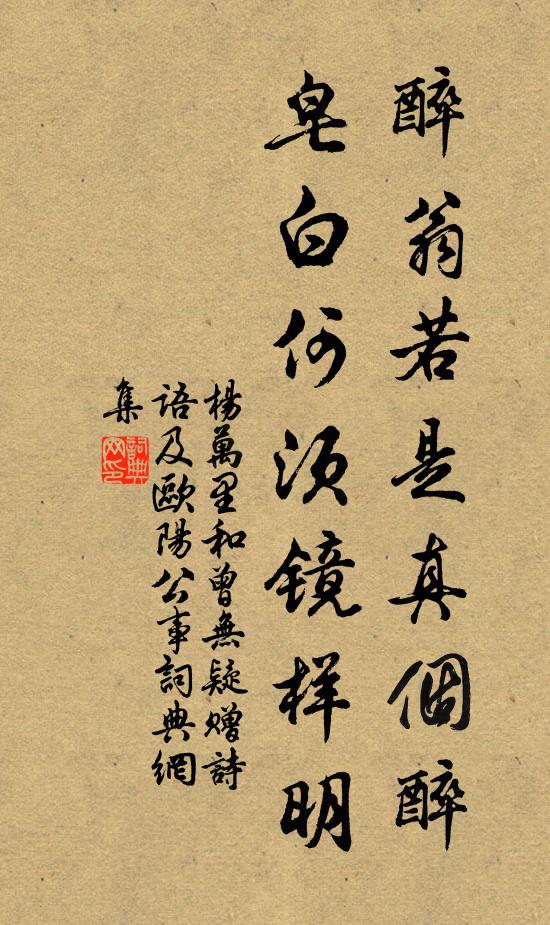 醉翁若是真個醉
皂白何須镜样明
楊萬里和曾無疑赠詩
語及歐陽公事詞典網
集
詞典
网印